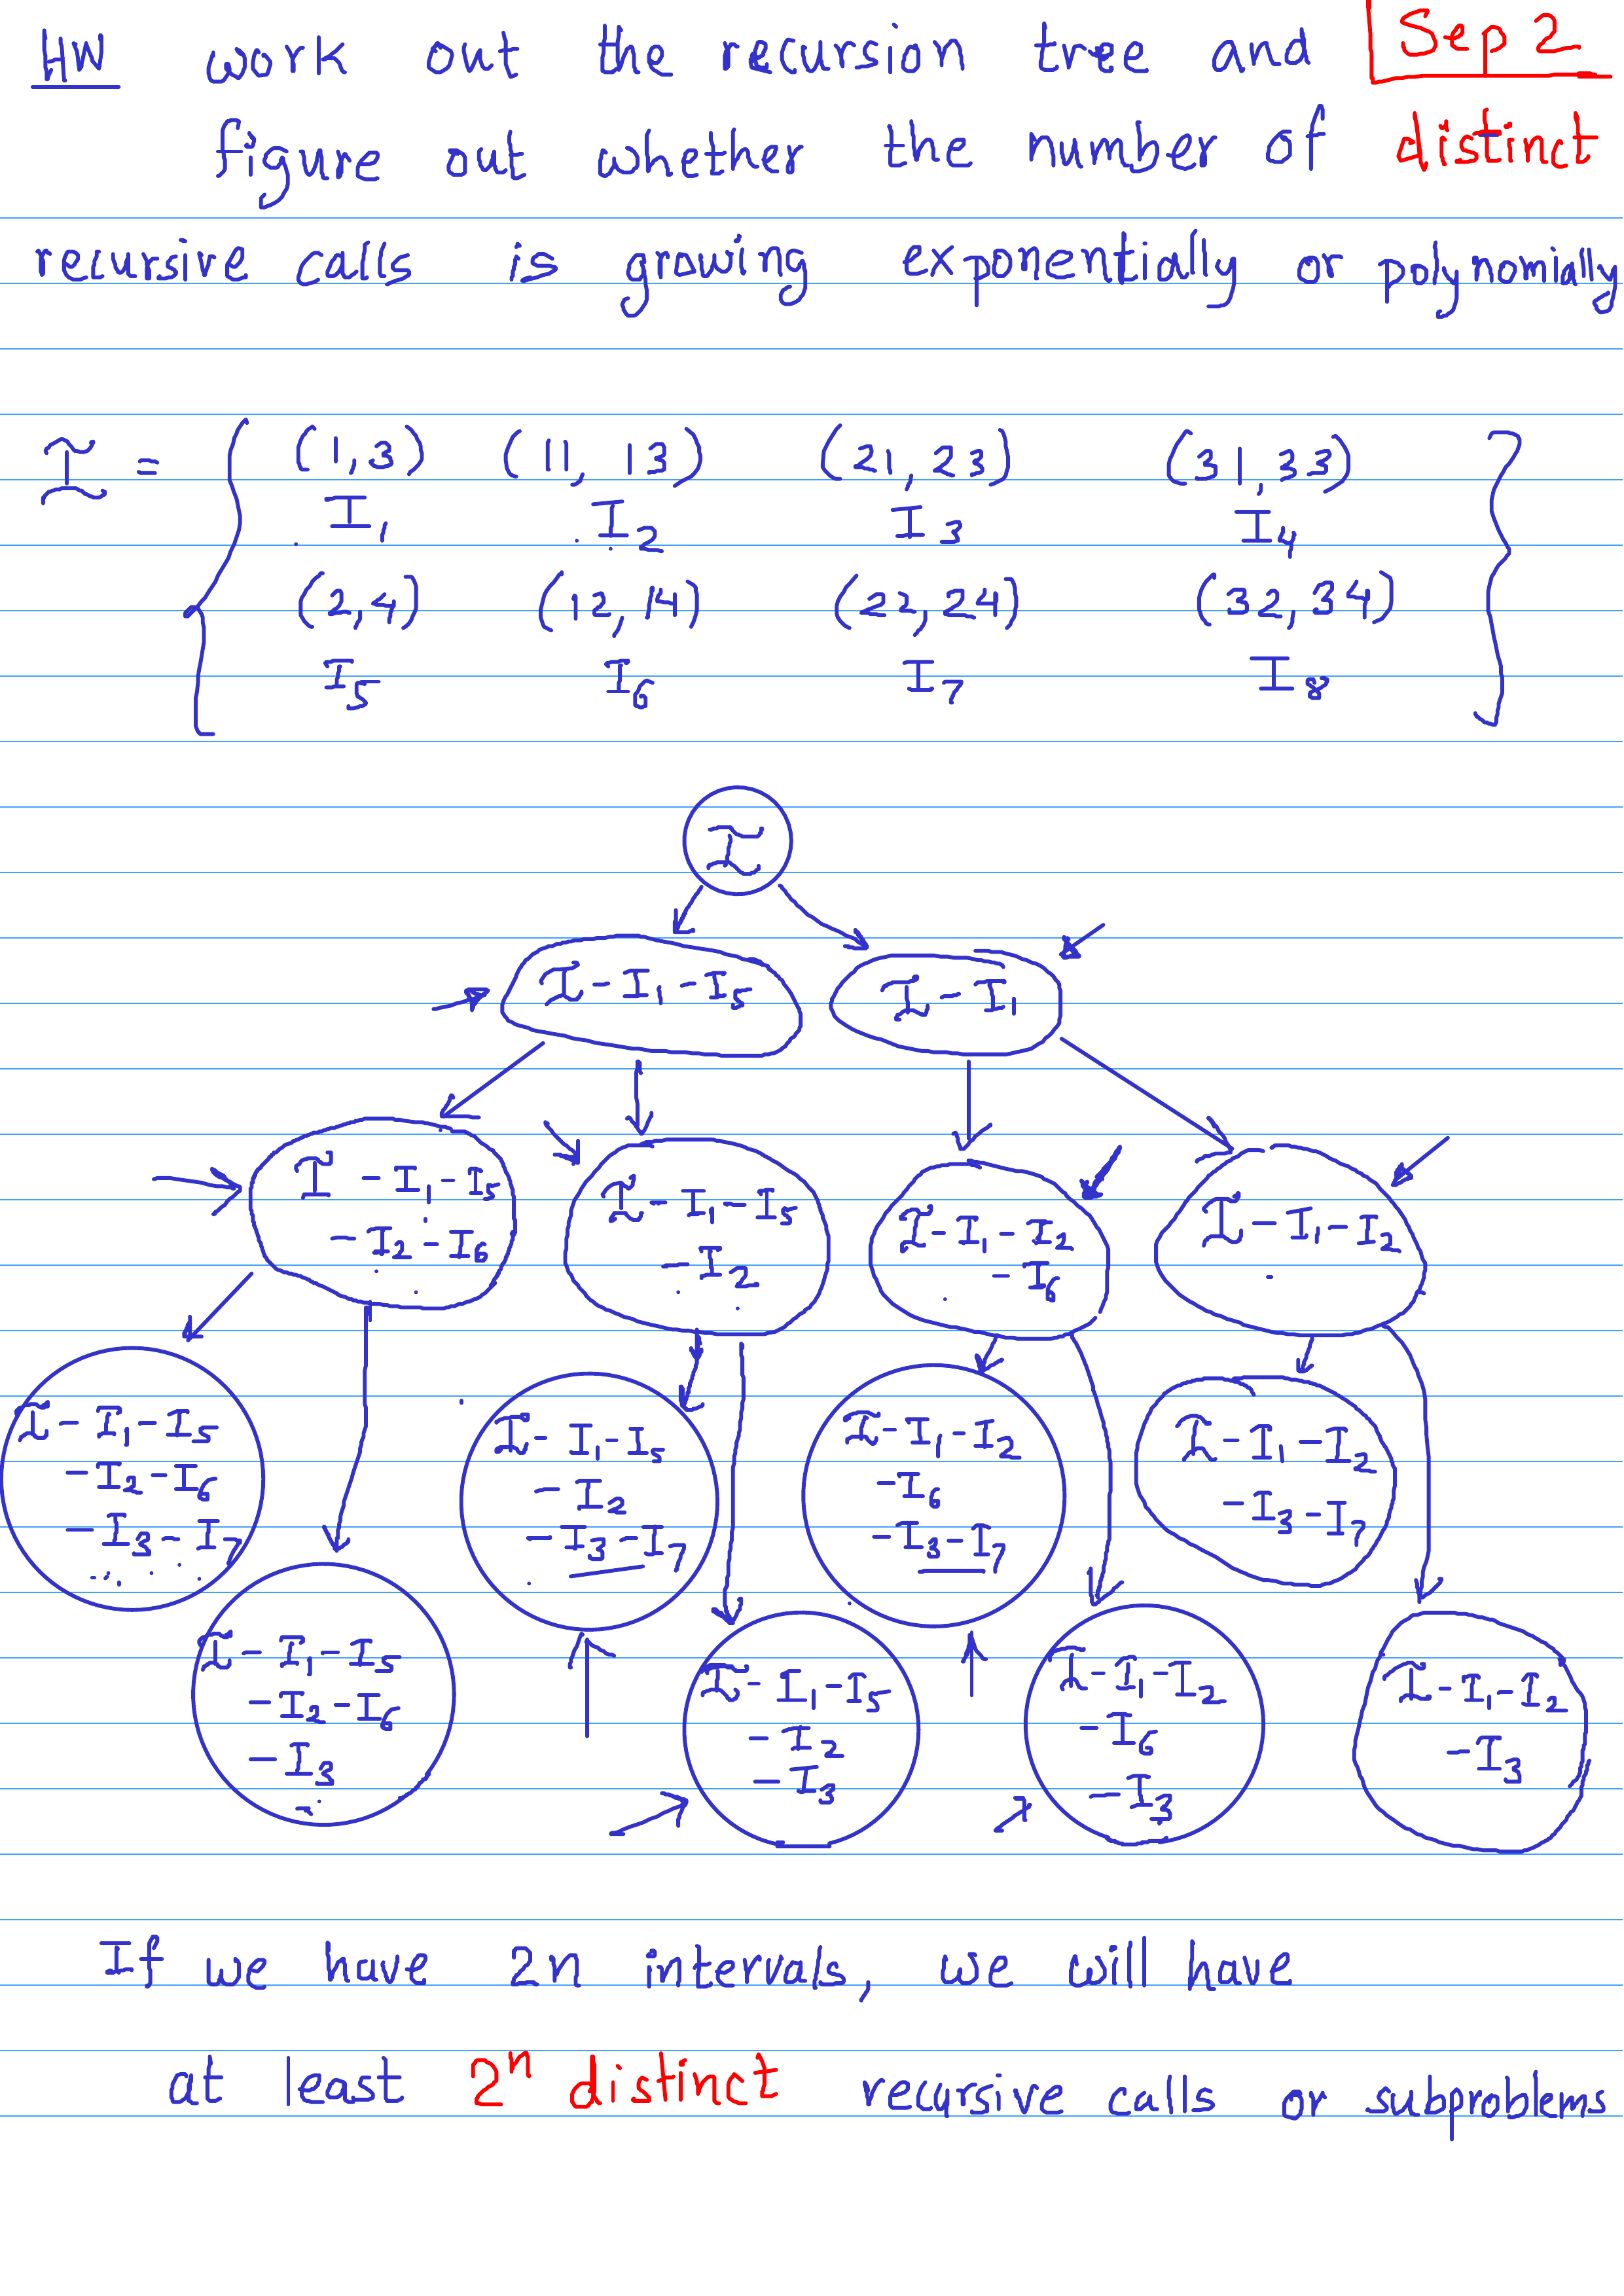 HW work out the recursion tree and Sep 2
figure out whether the number of distinct
recursive calls is growing exponentially or polynomially
I = { (1,3) (11, 13) (21, 23) (31, 33) }
I1 I2 I3 I4
(2,4) (12, 14) (22, 24) (32, 34)
I5 I6 I7 I8
I
I - I1 - I5
I - I1
I - I1 - I5
- I2 - I6
I - I1 - I5
- I2
I - I1 - I2
- I6
I - I1 - I2
I - I1 - I5
- I2 - I6
- I3 - I7
I - I1 - I5
- I2
- I3 - I7
I - I1 - I2
- I6
- I3 - I7
I - I1 - I2
- I3 - I7
I - I1 - I5
- I2 - I6
- I3
I - I1 - I5
- I2
- I3
I - I1 - I2
- I6
- I3
I - I1 - I2
- I3
If we have 2n intervals, we will have
at least 2^n distinct recursive calls or subproblems